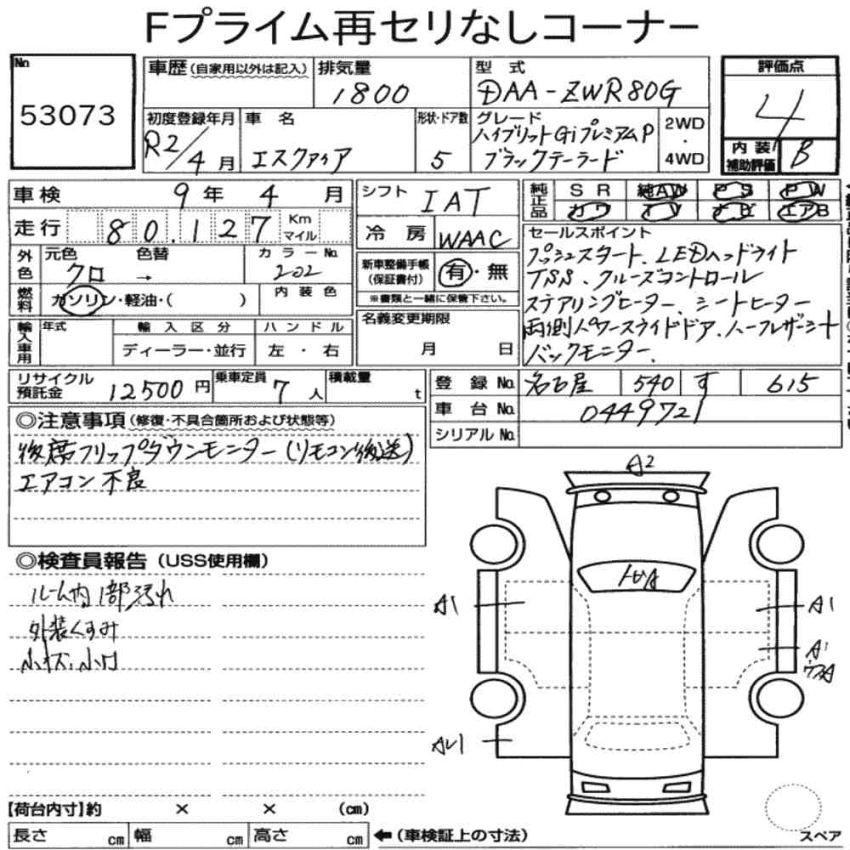 Fプライム再セリなしコーナー
No
53073
車歴(自家用以外は記入)
排気量
1800
型式
DAA-ZWR80G
評価点
4
初度登録年月
R2/4月
車名
エスクァイア
形状・ドア数
5
グレード
ハイブリットGiプレミアムP
ブラックテーラード
2WD
・
4WD
内装/
補助評価
B
車検
9年4月
シフト
IAT
純正品
SR
純AW
PS
PW
カワ
TV
ナビ
エアB
走行
80,127
Km
マイル
冷房
WAAC
セールスポイント
プッシュスタート、LEDヘッドライト
TSS、クルーズコントロール
ステアリングヒーター、シートヒーター
両側パワースライドドア、ハーフレザーシート
バックモニター、
外色
元色
クロ
色替
→
カラーNo.
202
新車整備手帳
(保証書付)
有・無
※書類と一緒に保管下さい。
燃料
ガソリン・軽油・( )
内装色
輸入車用
年式
輸入区分
ディーラー・並行
ハンドル
左・右
名義変更期限
月 日
リサイクル
預託金
12500円
乗車定員
7人
積載量
t
登録No.
名古屋 540 す 615
車台No.
0449721
シリアルNo.
◎注意事項(修復・不具合箇所および状態等)
後席フリップダウンモニター(リモコン後送)
エアコン不良
◎検査員報告(USS使用欄)
ルーム内1部汚れ
外装くすみ
小キズ、小凹
A2
A1
A1
A1
AU1
【荷台内寸】約 × × (cm)
長さ cm
幅 cm
高さ cm
←(車検証上の寸法)
スペア